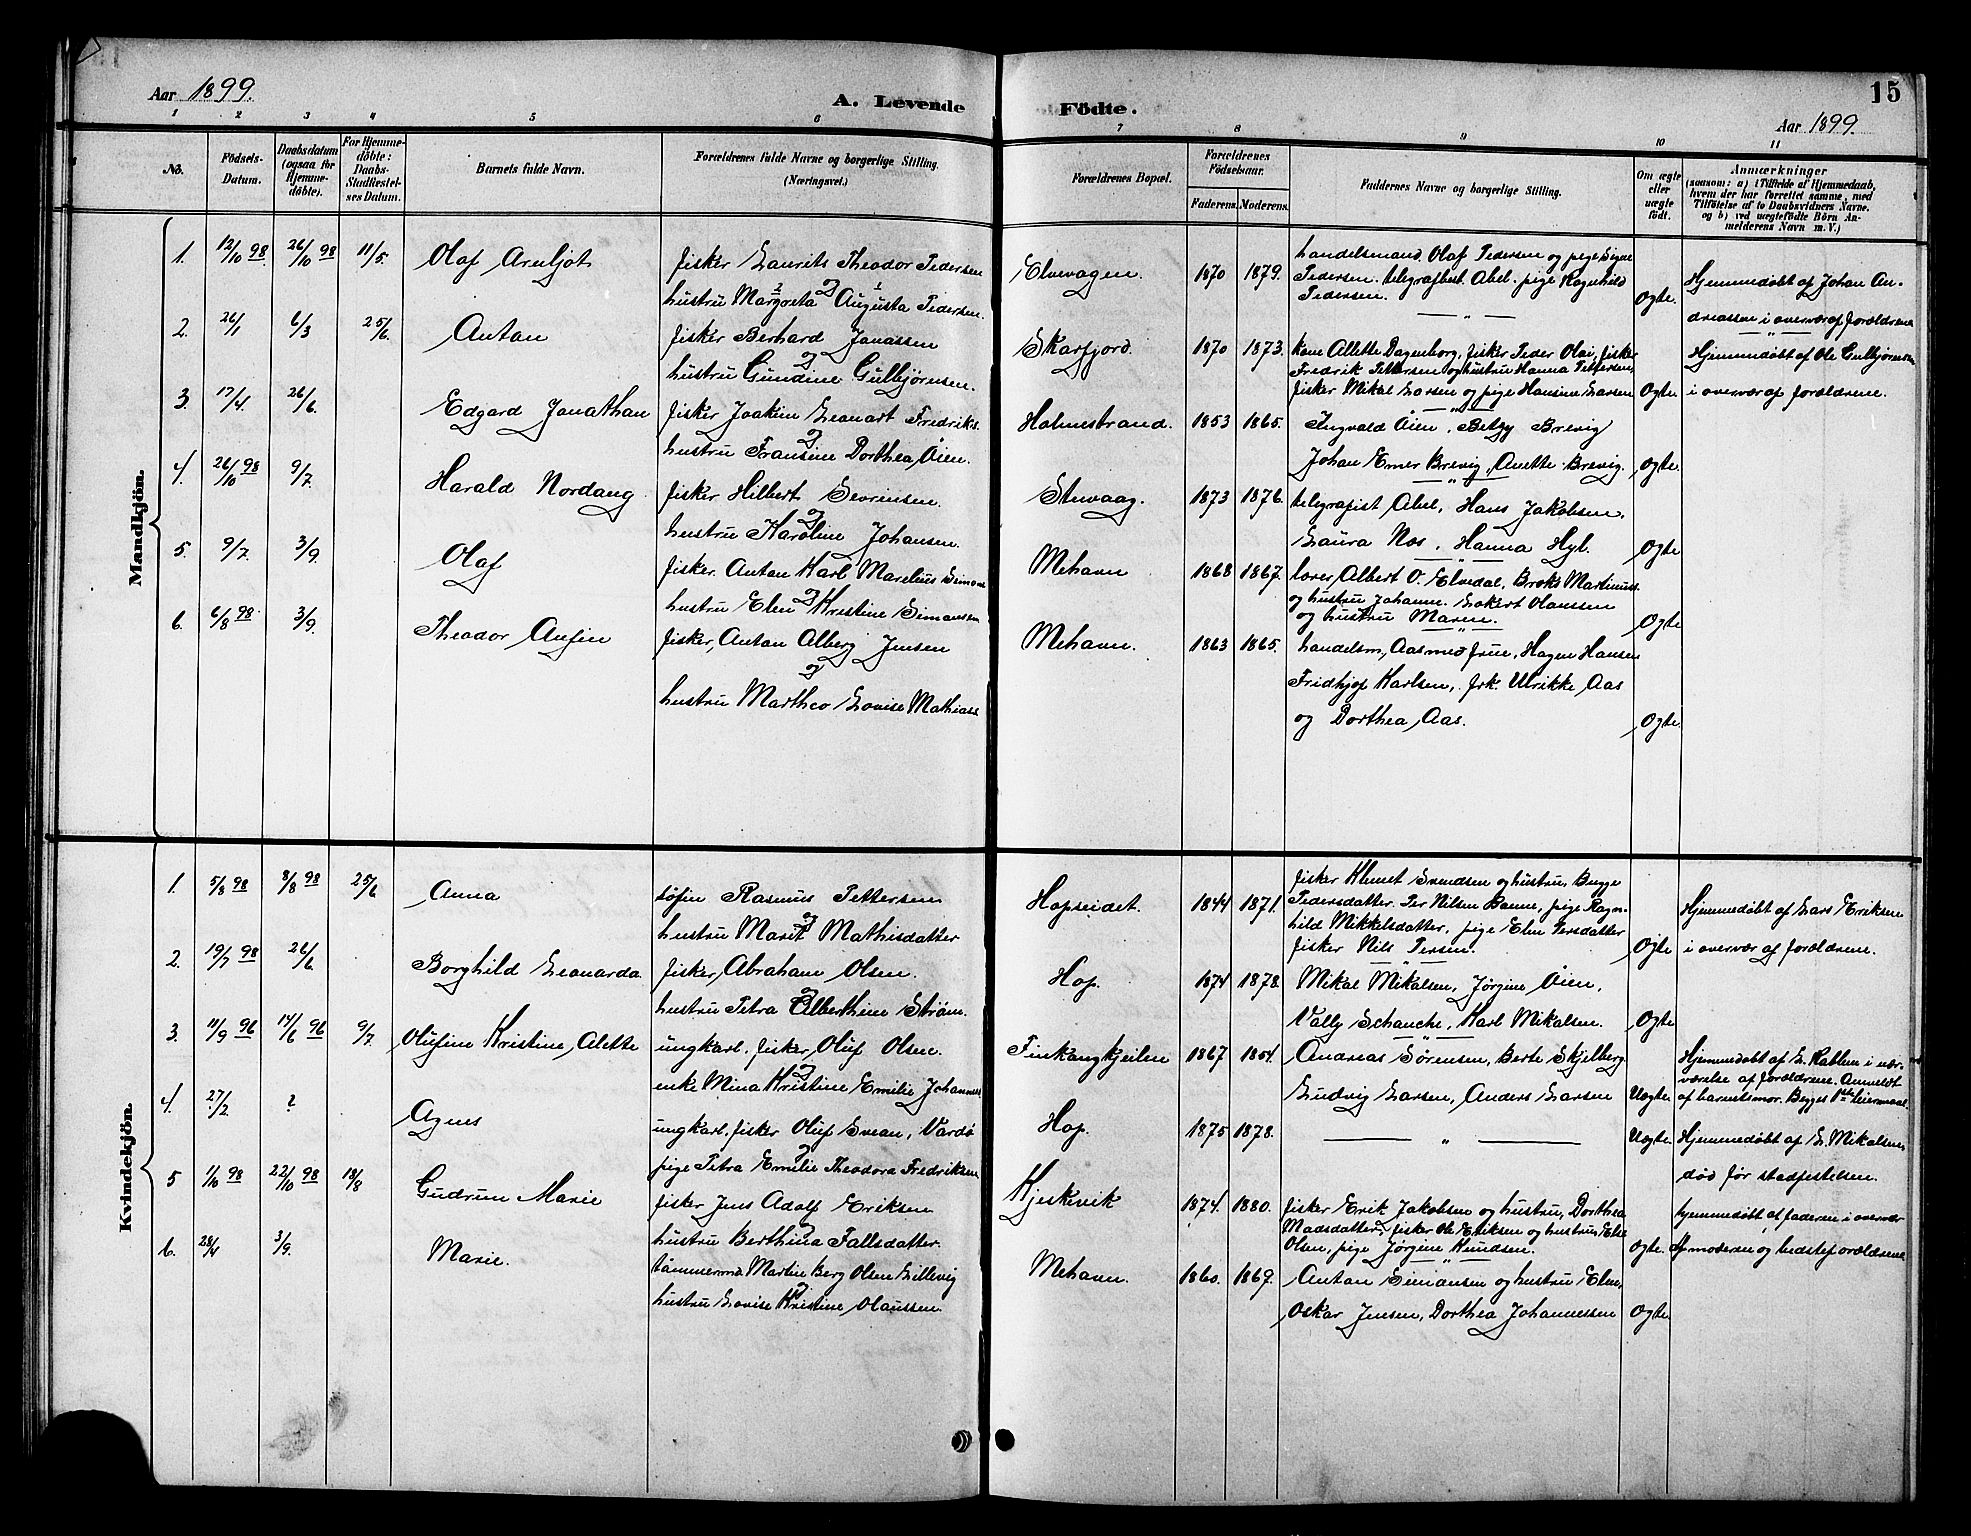 Aar 1899.
A. Levende Födte.
15
Aar 1899.
1 2 3 4 5 6 7 8 9 10 11
No.
Födsels-Datum.
Daabsdatum (ogsaa for Hjemmedöbte).
For Hjemmedöbte: Daabs-Stadfæstelses Datum.
Barnets fulde Navn.
Forældrenes fulde Navne og borgerlige Stilling. (Næringsvei.)
Forældrenes Bopæl.
Forældrenes Födselsaar.
Faderens. Moderens.
Faddernes Navne og borgerlige Stilling.
Om ægte eller uægte födt.
Anmærkninger (saasom: a) i Tilfælde af Hjemmedaab, hvem der har forrettet samme, med Tilföielse af to Daabsvidners Navne, og b) ved uægtefödte Börn Anmelderens Navn m. V.)
Mandkjön.
1. 12/10 98 26/10 98 11/5. Olaf Arnljot
fisker Laurits Theodor Pedersen
og
hustru Margreta Augusta Pedersen.
Elvevagen. 1870 1879.
handelsmand Olaf Pedersen og pige Signe
Pedersen. telegrafbest. Abel. pige Ragnhild
Pedersen.
Ægte.
Hjemmedøbt af Johan An-
dreassen i overvær af forældrene
2. 26/1 6/3 25/6. Anton
fisker Berhard Jonassen
og
hustru Gundine Gulbjörnsen.
Skarfjord. 1870 1873.
kone Allette Dagenborg, fisker Peder Olai, fisker
Fredrik Pettersen og hustru Hanna Pettersen,
fisker Mikal Larsen og pige Hansine Larsen
Ægte.
Hjemmedøbt af Ole Gulbjörnsen
i overvær af forældrene.
3. 17/4. 26/6. Edgard Jonathan
fisker Joakim Leonart Fredriks.
og
hustru Fransine Dorthea Öien.
Holmestrand. 1853 1865.
Ingvald Öien, Betzy Brevig
Johan Emer Brevig, Anette Brevig.
Ægte.
4. 26/10 98 9/7. Harald Nordang
fisker Hilbert Sevrinsen.
og
hustru Karoline Johansen.
Stuvaag. 1873 1876.
telegrafist Abel, Hans Jakobsen,
Laura Næs, Hanna Hyl.
Ægte
5. 9/7. 3/9. Olaf
fisker. Anton Karl Marelius Simons
og
hustru Elen Kristine Simonsen
Mehavn 1868 1867.
lærer, Albert O. Elvedal, Broks Martinus
og hustru Johanne. Lokert Olaussen
og hustru Maren.
Ægte
6. 6/8 98 3/9. Theodor Anfin
fisker, Anton Alberg Jensen
og
hustru Marthea Lovise Mathiass
Mehavn. 1863 1865.
handelsm, Aas med frue, Hagen Hansen
Fridhjof Karlsen, frk. Ulrikke Aas
og Dorthea Aas.
Ægte.
Kvindekjön.
1. 5/8 98 8/8 98 25/6 Anna
søfin Rasmus Pettersen
og
hustru Marit Mathisdatter
Hopseidet. 1844 1871.
fisker Klemet Svendsen og hustru, Bigge
Pedersdatter. Per Nilsen Banne, pige Ragn-
hild Mikkelsdatter, pige Elen Persdatter
fisker Nils Persen.
Ægte
Hjemmedøbt af Lars Eriksen
i overvær af forældrene.
2. 19/7 98 26/6 Borghild Leonarda
fisker, Abraham Olsen.
og
hustru Petra Alberthine Strøm.
Hop. 1874 1878.
Mikal Mikalsen, Jørgine Öien,
Vally Schanche, Karl Mikalsen.
Ægte
3. 11/9 96 14/6 96 9/7. Olufine Kristine Alette
ungkarl. fisker, Oluf Olsen.
og
enke Mina Kristine Emilie Johannes
Finkangkjeilen 1867 1854.
Andreas Sørensen, Berte Skjelberg
Ludvig Larsen, Anders Larsen
Uægte.
Hjemmedøbt af L. Rablem i nær-
værelse af forældrene. Anmeldt
af barnets mor. Begges 1ste leiermaal.
4. 27/2 ? Agnes
ungkarl, fisker Oluf Svean, Vardø
og
pige Petra Emilie Theodora Fredriksen
Hop. 1875 1878.
— " —
Uægte.
Hjemmedøbt af L. Mikalsen,
død før stadfestelsen.
5 1/10 98 22/10 98 18/8 Gudrun Marie
fisker Jens Adolf Eriksen
og
hustru Berthina Fallsdatter.
Kjeskevik 1874. 1880.
fisker Erik Jakobsen og hustru, Dorthea
Madsdatter, fisker Ole Eriksen og hustru, Else
Olsen, pige Jørgine Knudsen.
Ægte.
hjemmedøbt af faderen i overvær
af moderen og bedsteforældrene
6. 28/4 3/9. Marie.
tømmermd. Martin Berg Olsen Lillevig
og
hustru Lovise Kristine Olaussen.
Mehavn. 1860. 1869.
Anton Simonsen og hustru Elen,
Oskar Jensen, Dorthea Johannessen
Ægte.